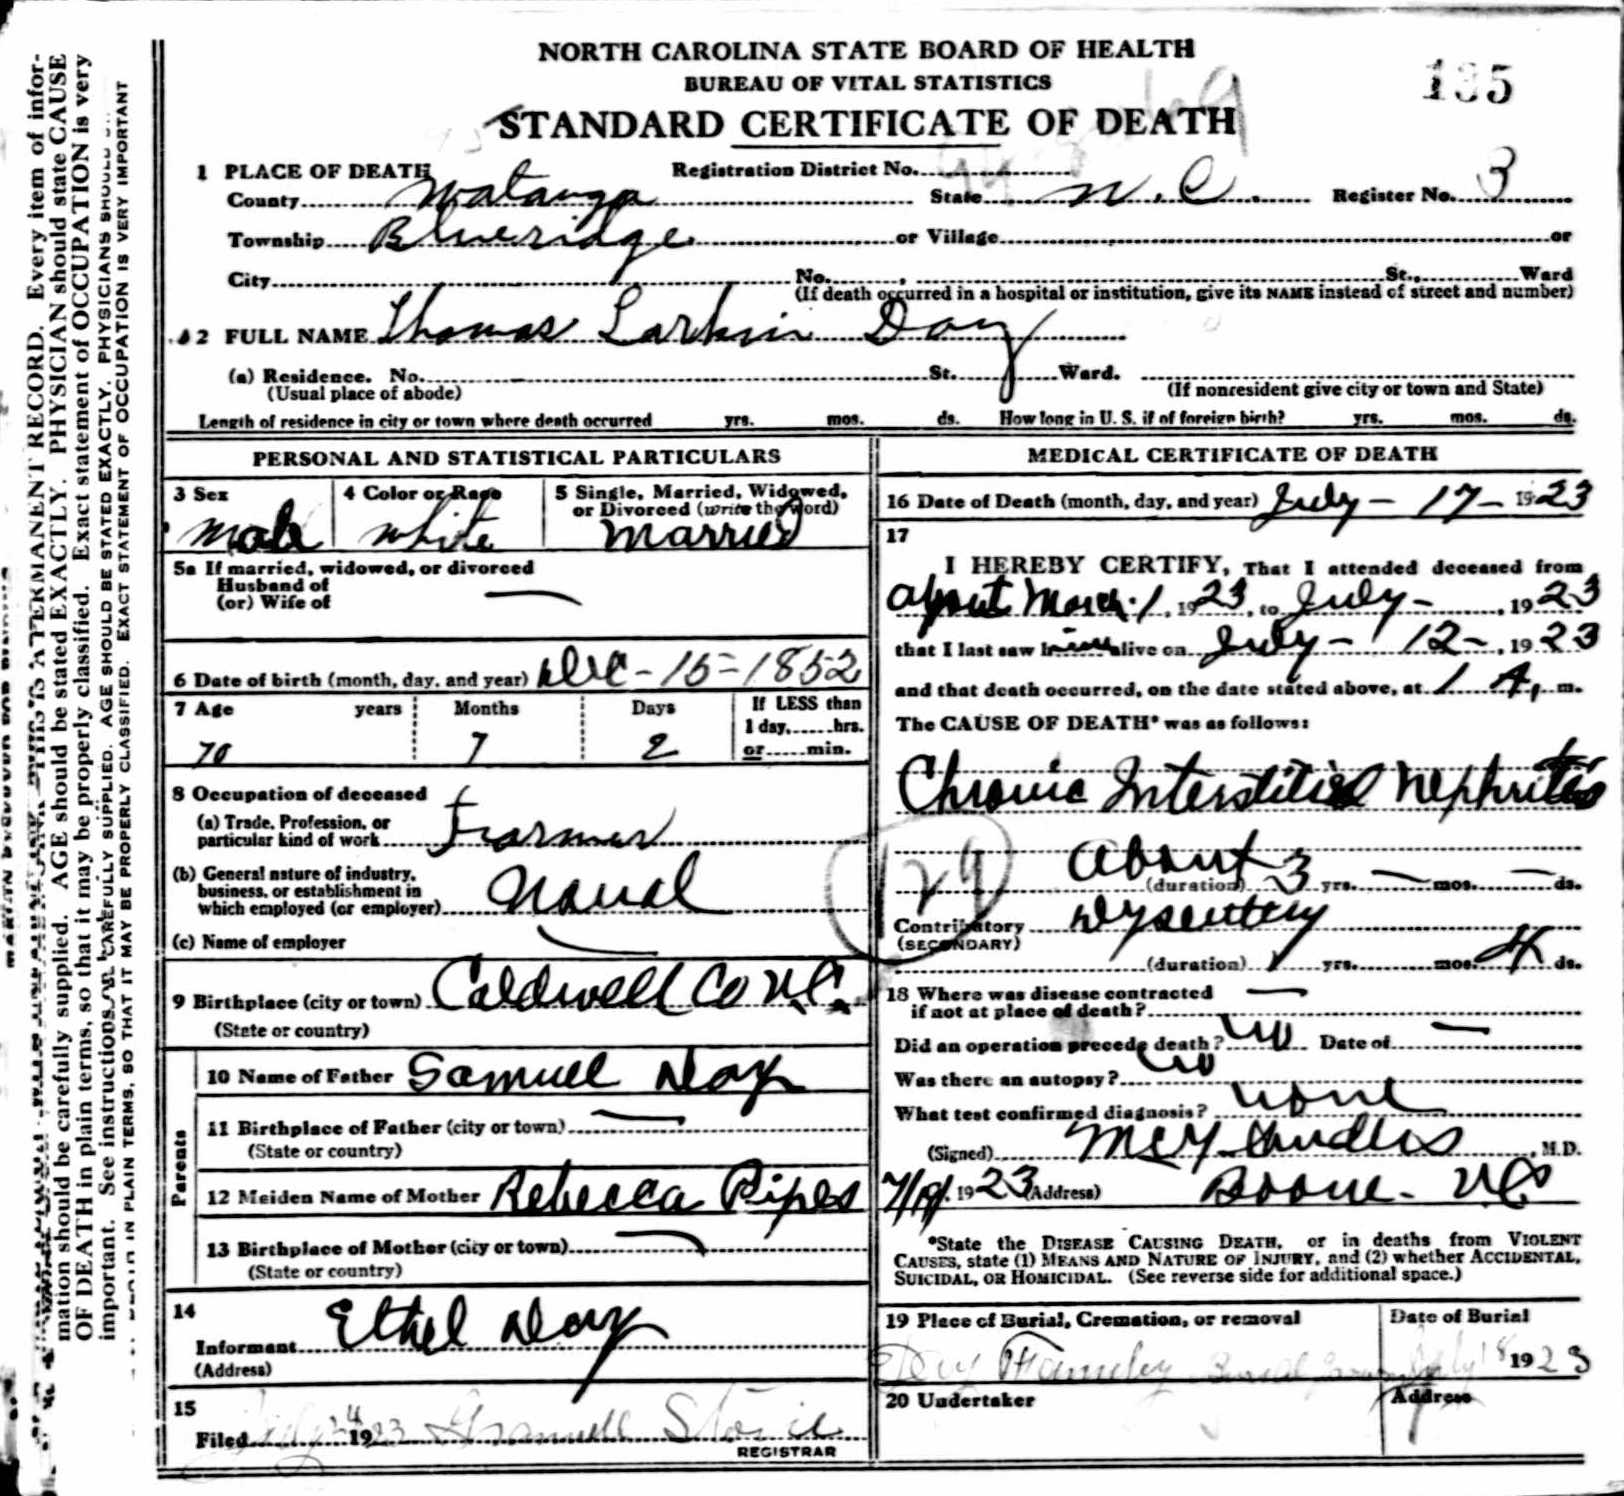 NORTH CAROLINA STATE BOARD OF HEALTH
BUREAU OF VITAL STATISTICS
135
STANDARD CERTIFICATE OF DEATH
1 PLACE OF DEATH Registration District No.
County Watauga State N. C. Register No. 3
Township Blueridge or Village or
City No. , St., Ward
(If death occurred in a hospital or institution, give its NAME instead of street and number)
2 FULL NAME Thomas Larkin Day
(a) Residence. No. St. Ward.
(Usual place of abode) (If nonresident give city or town and State)
Length of residence in city or town where death occurred yrs. mos. ds. How long in U. S. if of foreign birth? yrs. mos. ds.
PERSONAL AND STATISTICAL PARTICULARS
3 Sex 4 Color or Race 5 Single, Married, Widowed, or Divorced (write the word)
Male White Married
5a If married, widowed, or divorced
Husband of
(or) Wife of
6 Date of birth (month, day, and year) Dec - 15 - 1852
7 Age years Months Days If LESS than
1 day, hrs.
or min.
70 7 2
8 Occupation of deceased
(a) Trade, Profession, or
particular kind of work Farmer
(b) General nature of industry,
business, or establishment in
which employed (or employer)
(c) Name of employer
9 Birthplace (city or town) Caldwell Co N.C.
(State or country)
Parents
10 Name of Father Samuel Day
11 Birthplace of Father (city or town)
(State or country)
12 Maiden Name of Mother Rebecca Pipes
13 Birthplace of Mother (city or town)
(State or country)
14
Informant Ethel Day
(Address)
15
Filed July 24 1923
REGISTRAR
MEDICAL CERTIFICATE OF DEATH
16 Date of Death (month, day, and year) July - 17 - 1923
17
I HEREBY CERTIFY, That I attended deceased from
about March 1, 1923, to July - , 1923
that I last saw him alive on July - 12 - , 1923
and that death occurred, on the date stated above, at 1 A. m.
The CAUSE OF DEATH* was as follows:
Chronic Interstitial Nephritis
129
About
(duration) 3 yrs. mos. ds.
Contributory Dysentery
(SECONDARY)
(duration) yrs. mos. 4 ds.
18 Where was disease contracted
if not at place of death?
Did an operation precede death? No Date of
Was there an autopsy? No
What test confirmed diagnosis? None
(Signed) , M.D.
1923 (Address) Boone - NC
*State the DISEASE CAUSING DEATH, or in deaths from VIOLENT
CAUSES, state (1) MEANS AND NATURE OF INJURY, and (2) whether ACCIDENTAL,
SUICIDAL, OR HOMICIDAL. (See reverse side for additional space.)
19 Place of Burial, Cremation, or removal Date of Burial
Day Family July 18 1923
20 Undertaker Address
mation should be carefully supplied. AGE should be stated EXACTLY. PHYSICIAN should state CAUSE
OF DEATH in plain terms, so that it may be properly classified. Exact statement of OCCUPATION is very
important. See instructions